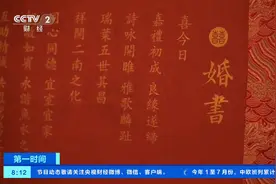 CCTV 2
财经
婚書
喜今日
嘉禮初成 良緣遂締
詩詠關雎 雅歌麟趾
瑞葉五世其昌
祥開二南之化
同心同德 宜室宜家
第一时间
8:12
节目动态敬请关注央视财经微博、微信、客户端。
今年1至7月份，中欧班列累计